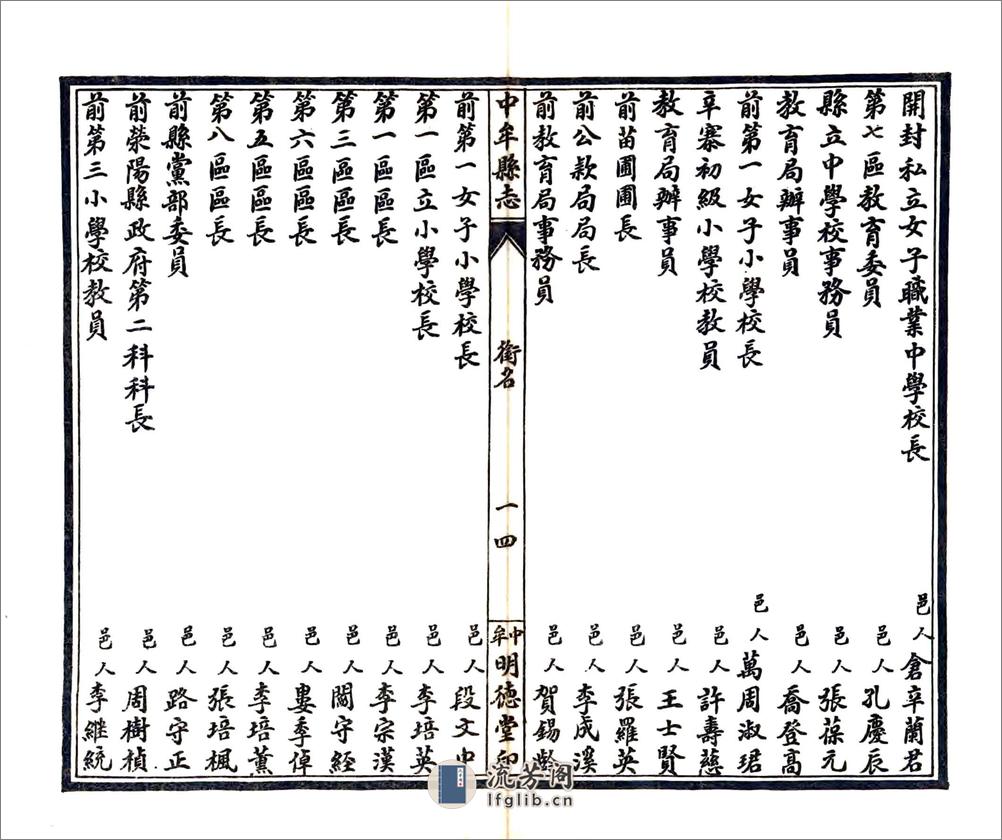 開封私立女子職業中學校長 邑人 倉辛蘭君
第七區教育委員 邑人 孔慶辰
縣立中學校事務員 邑人 張葆元
教育局辦事員 邑人 喬登高
前第一女子小學校長 邑人 萬周淑珺
辛寨初級小學校教員 邑人 許壽慈
教育局辦事員 邑人 王士賢
前苗圃圃長 邑人 張羅英
前公款局局長 邑人 李成溪
前教育局事務員 邑人 賀錫齡
中牟縣志 銜名 一四 中牟明德堂印
前第一女子小學校長 邑人 段文中
第一區立小學校長 邑人 李培英
第一區區長 邑人 李宗漢
第三區區長 邑人 閻守經
第六區區長 邑人 婁季倬
第五區區長 邑人 李培薰
第八區區長 邑人 張培楓
前縣黨部委員 邑人 路守正
前滎陽縣政府第二科科長 邑人 周樹楨
前第三小學校教員 邑人 李繼統
流芳阁
lfglib.cn